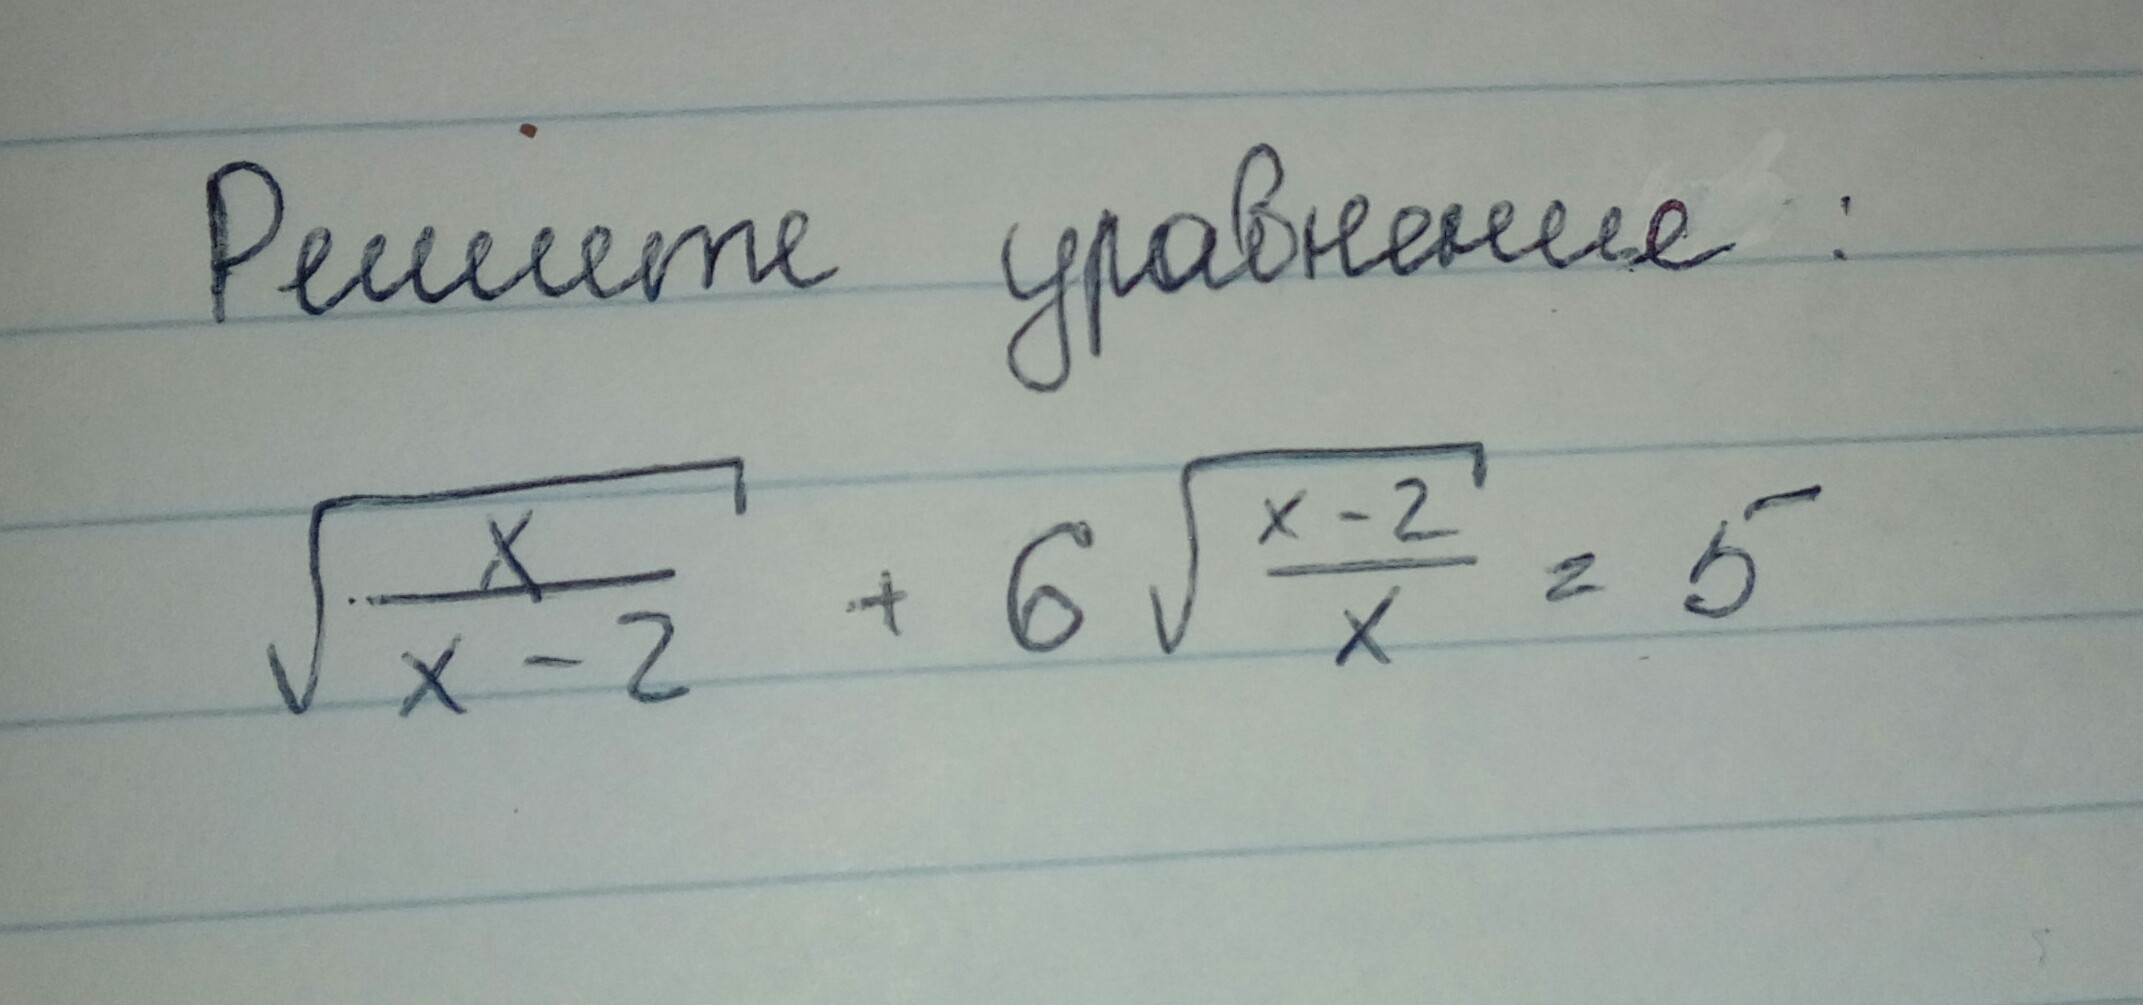 Решите уравнение:
√(x/(x-2)) + 6√((x-2)/x) = 5